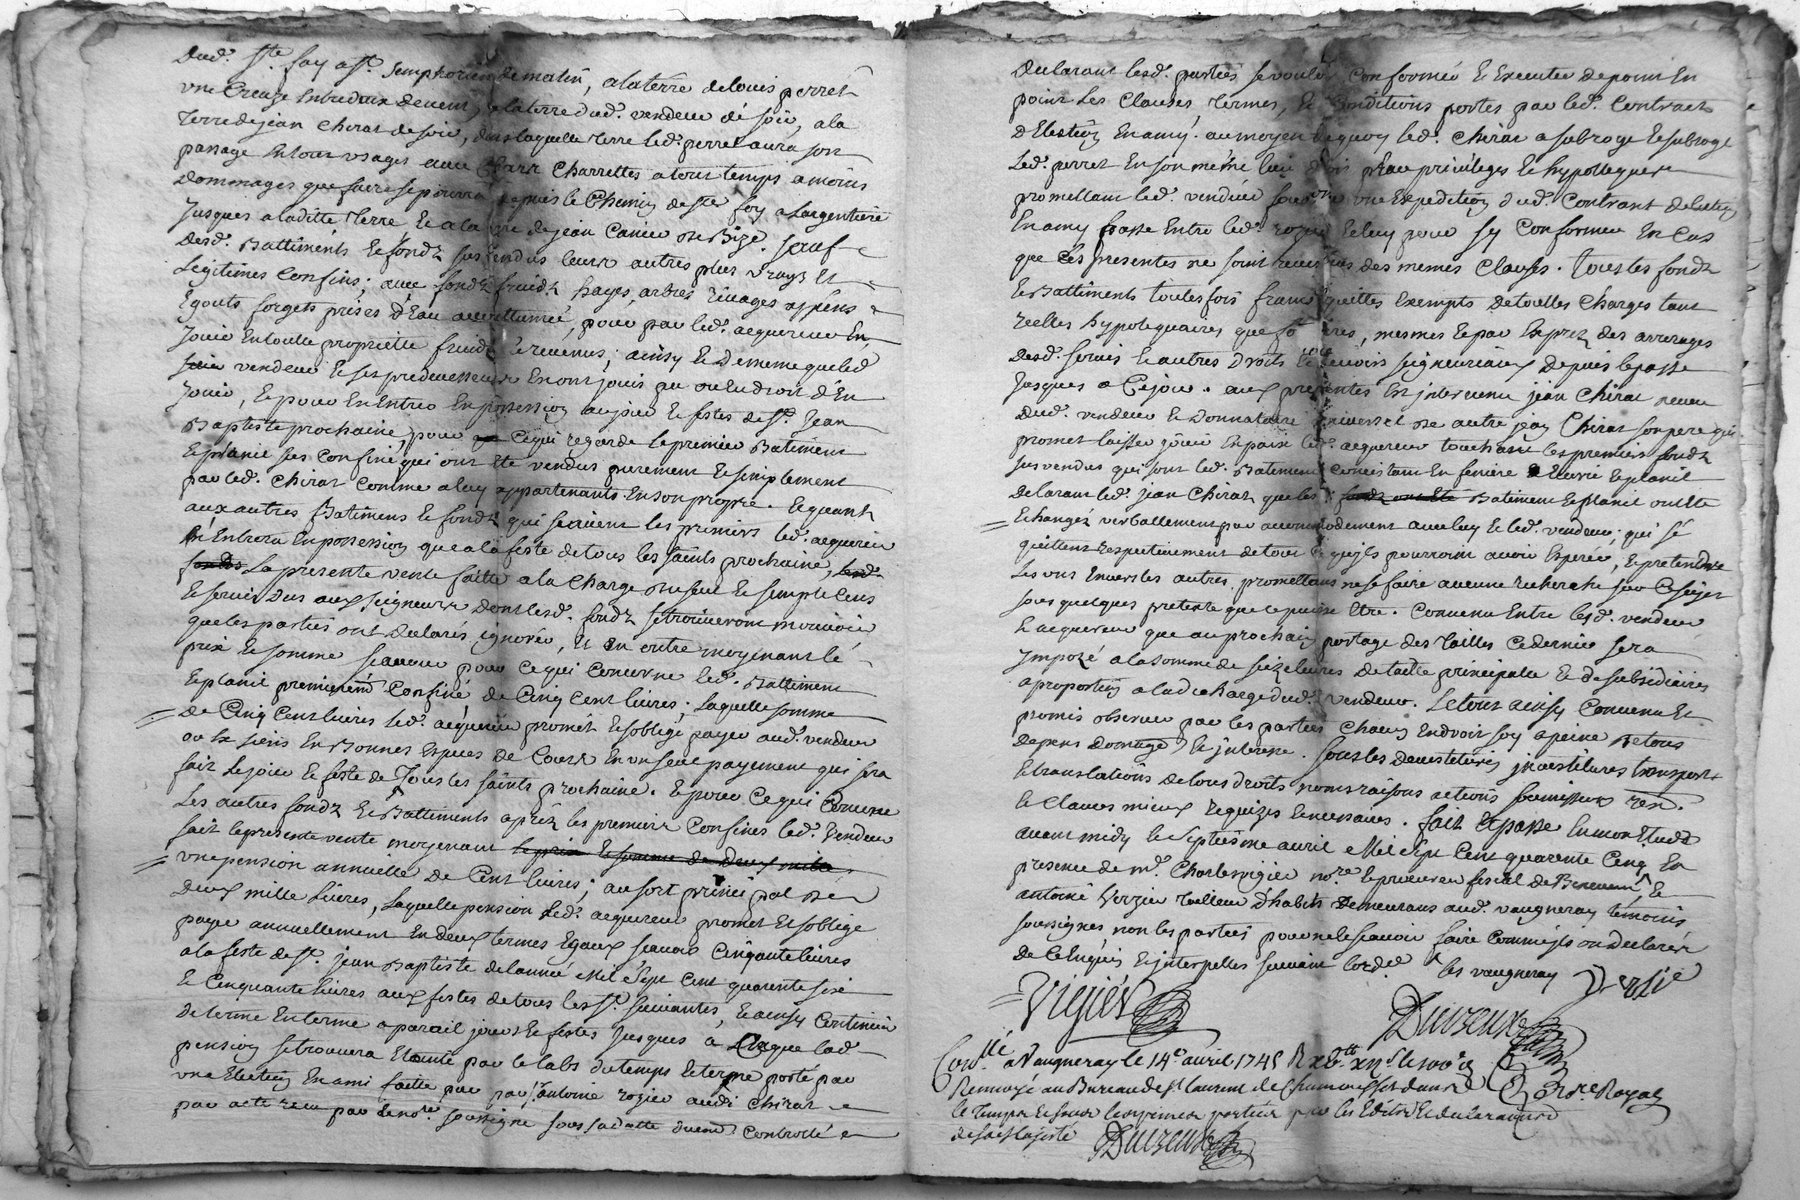 dud. Ste. foy a St. Simphorien de matin, a la terre de louis perret
une Creuze entredeux de vent, a la terre dud. vendeur de soir, a la
terre de jean Chirat de soir, dans laquelle terre led. perret aura son
passage en tous usages avec Chars Charrettes a tous temps a moins
dommages que faire se pourra depuis le Chemin de Ste foy a Largentiere
jusques a laditte terre Et a la de jean de Bize. sauf
desd. Battiments Et fondz sus vendus leurs autres plus vrays Et
Legitimes Confins; avec fondz fruidz hayes, arbres rivages
Egouts forgets prises d'Eau accoutumée, pour par led. acquereur En
jouir En toutte proprietté fruidz Et revenus; ainsy Et de meme que led
vendeur Et ses predecesseurs En ont jouis pu ou eu droit d'En
jouir, Et pour En Entrer En possession au jour Et feste de St. Jean
Baptiste prochaine, pour Ce qui regarde le premier Batiment
Et planié sus Confiné qui ont Ete vendus purement Et simplement
par led. Chirat Comme a luy appartenants En son propre. Et quant
aux autres Batimens Et fondz qui suivent les premiers led. acquereur
n'Entrera En possession que a la feste de tous les saints prochaine,
La presente vente faitte a la Charge du seul Et simple Cens
Et servis dus aux seigneurs dont lesd. fondz se trouveront mouvoir
que les parties ont declarés ignorer, Et En outre moyenant le
prix Et somme scavoir pour ce qui Concerne led. Battiment
Et planié premierem.t Confiné de Cinq Cent livres; Laquelle somme
de Cinq Cent livres led. acquereur promet Et s'oblige payer aud. vendeur
ou les siens En Bonnes Especes de Cours En un seul payement qui sera
fait le jour Et feste de Tous les saints prochaine. Et pour Ce qui Concerne
Les autres fondz Et Battiments après les premiers Confinés led. vendeur
fait la presente vente moyenant le prix Et somme de deux mille
une pension annuelle de Cent livres; au sort principal de
deux mille Livres, Laquelle pension led. acquereur promet Et s'oblige
payer annuellement En deux termes Egaux scavoir Cinquante livres
a la feste de St. jean Baptiste de lannée Mil Sept Cent quarente six
Et Cinquante livres aux festes de tous les Sts. suivantes, Et ainsy Continuer
de terme En terme a pareil jours Et festes jusques à Ce que lad.
pension se trouvera Eteinte par le labs du temps Et terme porté par
une Election En ami faitte par antoine rozier audi Chirat
par acte recu par le nore. soussigné sous sa datte duem. Controllé
Declarant lesd. parties se vouloir Conformer Et Executer de point En
point Les Clauses termes, Et Conditions portes par led. Contract
d'Election En amy. au moyen de quoy led. Chirat a subrogé Et subroge
Led. perret En son meme lieu droit place privileges Et hypotteques
promettant led. vendeur fournir une Expedition dud. Contrant delection
En amy passé Entre led. rozier Et luy pour sy Conformer En Cas
que Ces presentes ne soint revetües des memes Clauses. Tous les fondz
Et Battiments toutesfois francs quittes Exempts de touttes Charges tant
reelles hypotequaires que, mesmes Et par Exprez des arrerages
desd. servis Et autres droits Et devoirs seigneuriaux depuis le passé
jusques a Ce jour. aux presentes Est intervenu jean Chirat neveu
dud. vendeur Et Donnataire universel de autre jean Chirat son pere qui
promet laisser jouir En paix led. acquereur touchant les premiers fondz
sus vendus qui sont led. Batiment Concistant En feniere Et Ecurie Et planié
declarant led. jean Chirat que les fondz ont Ete Batiment Et planié ont Ete
Echangés verballement par accomodement avec luy Et led. vendeur; qui se
quittent respectivement de tout Ce quils pourroint avoir Esperer, Et pretendre
Les uns Envers les autres, promettans ne se faire aucune recherche pour Ce sujet
sous quelques pretexte que ce puisse Etre. Convenu Entre lesd. vendeur
Et acquereur que au prochain portage des Tailles Ce dernier sera
Imposé a la somme de seize livres de taille principalle Et de subsidiaires
a proportion a la decharge dud. vendeur. Le tout ainsy Convenu Et
promis observer par les parties Chacun Endroit soy a peine de tous
depens domage Et interest. sous les devestitures investitures transport
Et translations de tous droits noms raisons actions soumissions ren.
Et Clauses mieux requizes Et necessaires. fait Et passé En mon Etude
avant midy le septieme avril Mil Sept Cent quarente Cinq En
presence de me. Charles vigier nore. Et procureur fiscal de Benevent, Et
antoine Verzier tailleur d'habits demeurans aud. vaugneray temoins
soussignes non les parties pour ne le scavoir faire Comme ils ont declarés
de Ce Enquis Et interpellés suivant lordce. led. vaugneray
Vigier
Verzié
Duvzeux
Con.lé a Vaugneray le 14e avril 1745 R
Renvoyé au Bureau de St Laurent de Chamousset dans
Nore. Royal
de sa Majesté